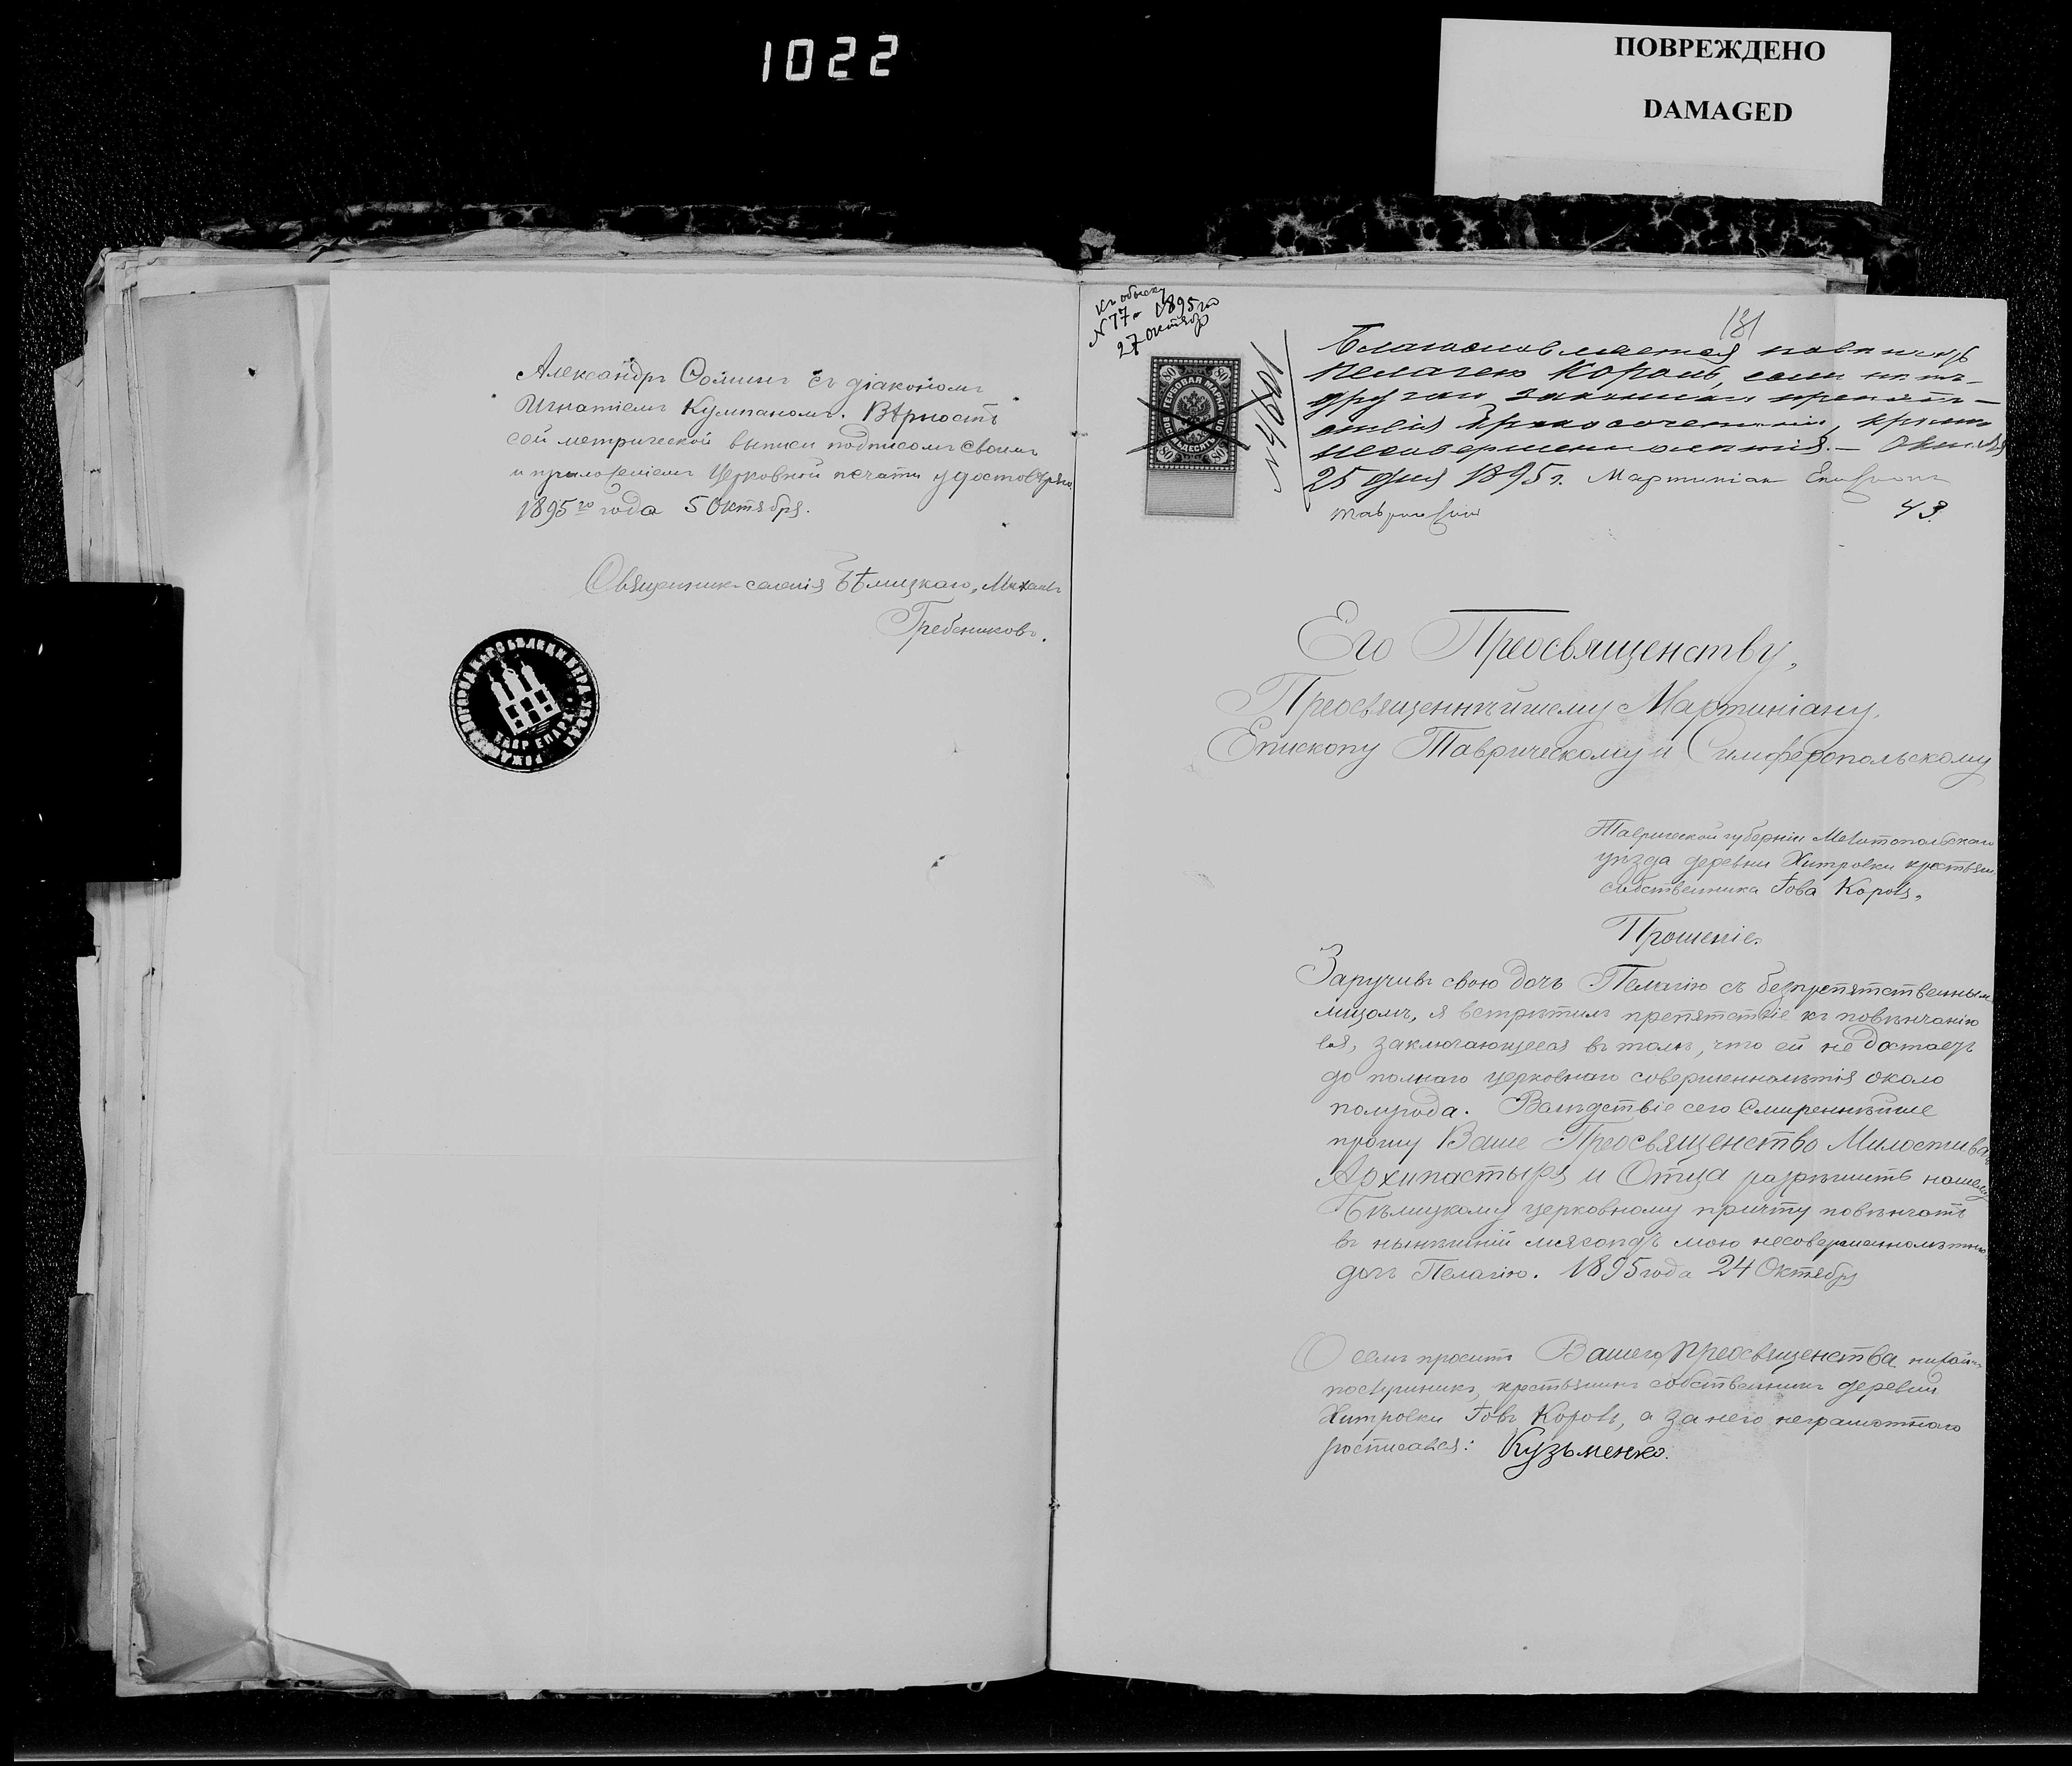 1022
ПОВРЕЖДЕНО
DAMAGED
Александръ Сомина съ діакономъ
Игнатіемъ Кулпаномъ. Вѣрность
сей метрической выписи подписомъ своимъ
и приложеніемъ церковной печати удостовѣряю.
1895го года 5 Октября.
Священникъ селенія Бѣлицкаго, Михаилъ
Гребениковъ.
Къ обыску
N 77й 1895го
27 октябр
181
ГЕРБОВАЯ МАРКА
ВОСЕМЬДЕСЯТЪ КОП.
80
Благословляется повѣнчать
Пелагею Король, если нѣтъ
другихъ законныхъ препят-
ствій бракосочетанію, кромѣ
несовершеннолѣтія. — Октября
25 дня 1895 г. Мартиніанъ Епископъ
Таврическій
43.
Его Преосвященству,
Преосвященнѣйшему Мартиніану,
Епископу Таврическому и Симферопольскому
Таврической губерніи Мелитопольскаго
уѣзда деревни Хитровки крестьян.
собственника Іова Короля,
Прошеніе.
Заручивъ свою дочь Пелагію съ безпрепятственнымъ
лицомъ, я встрѣтилъ препятствіе къ повѣнчанію
ея, заключающееся въ томъ, что ей не достаетъ
до полнаго церковнаго совершеннолѣтія около
полугода. Вслѣдствіе сего Смиреннѣйше
прошу Ваше Преосвященство Милостиваго
Архипастыря и Отца разрѣшить нашему
Бѣлицкому церковному причту повѣнчать
въ нынѣшній мясоѣдъ мою несовершеннолѣтнюю
дочь Пелагію. 1895 года 24 Октября
О семъ проситъ Вашего Преосвященства нижайшій
послушникъ, крестьянинъ собственникъ деревни
Хитровки Іовъ Король, а за него неграмотнаго
росписался: Кузьменко.